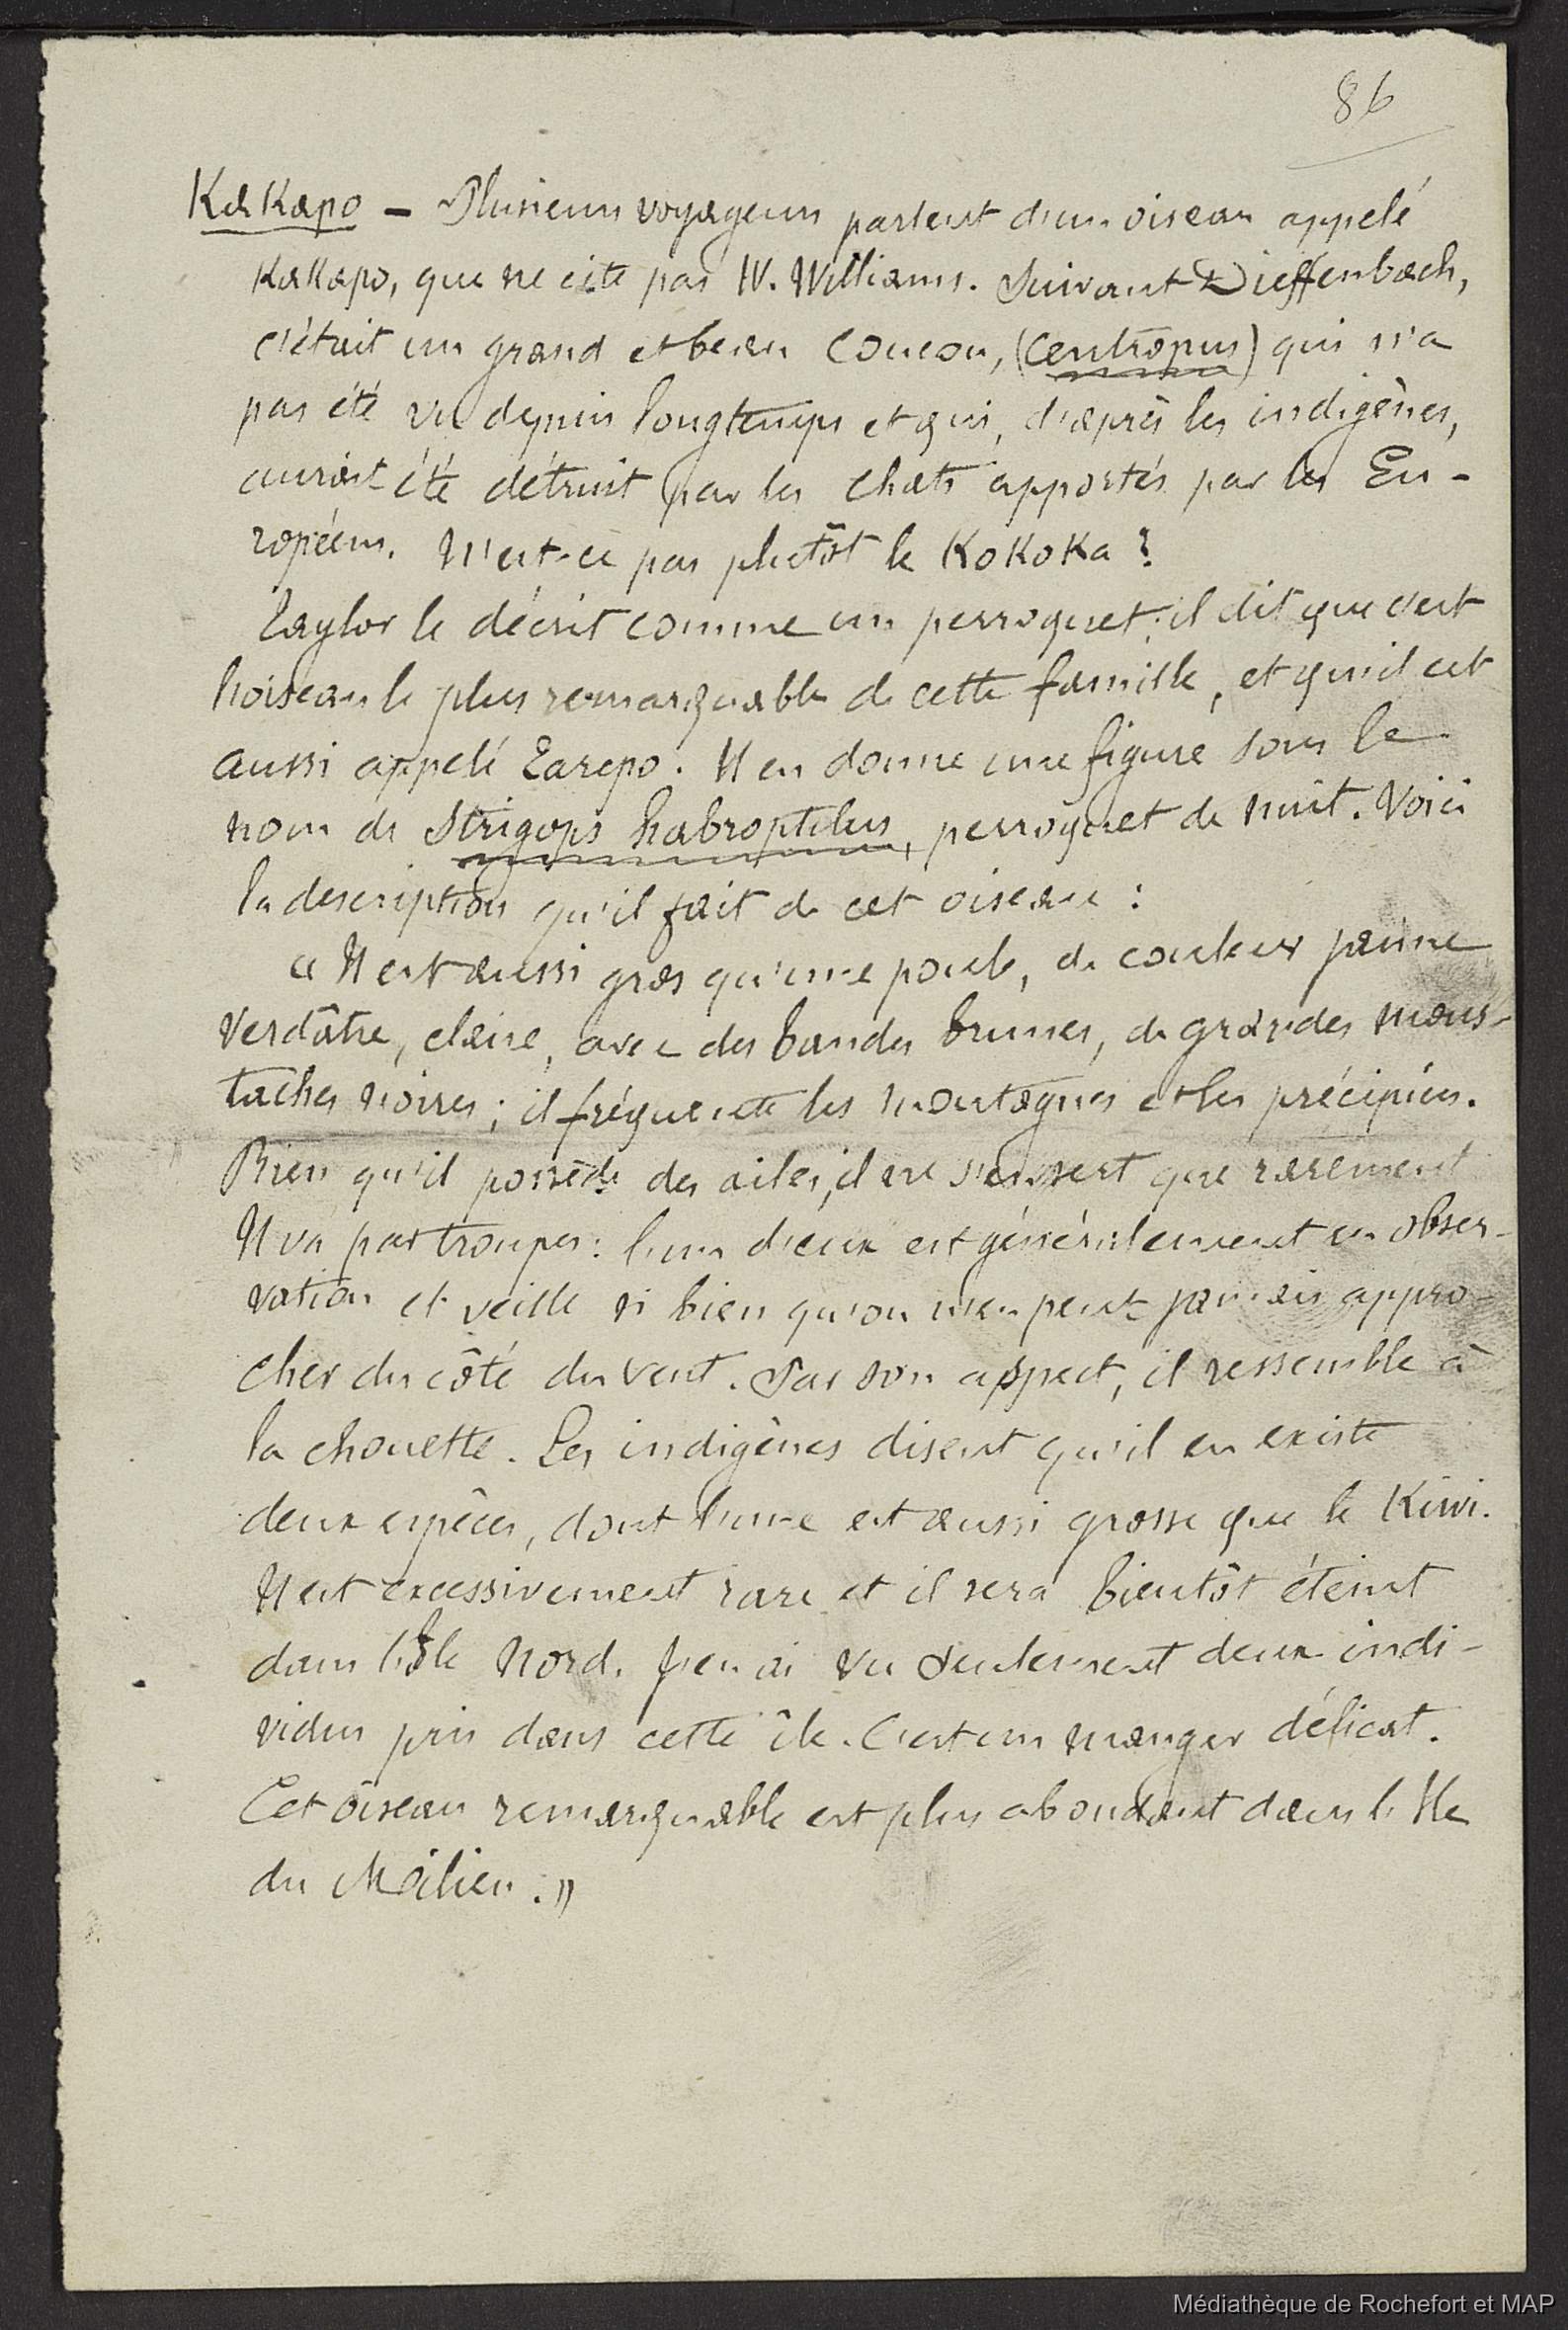 86
KaKapo - Plusieurs voyageurs parlent d'un oiseau appelé
KaKapo, que ne cite pas W. Williams. Suivant Dieffenbach,
c'était un grand et beau Coucou, (Centropus) qui n'a
pas été vu depuis longtemps et qui, d'après les indigènes,
aurait été détruit par les chats apportés par les Eu-
ropéens. N'est-ce pas plutôt le KoKoKa ?
Taylor le décrit comme un perroquet; il dit que c'est
l'oiseau le plus remarquable de cette famille, et qu'il est
aussi appelé Tarepo. Il en donne une figure sous le
nom de Strigops habroptilus, perroquet de nuit. Voici
la description qu'il fait de cet oiseau :
« Il est aussi gros qu'une poule, de couleur jaune
verdâtre, claire, avec des bandes brunes, de grandes mous-
taches noires; il fréquente les montagnes et les précipices.
Bien qu'il possède des ailes, il ne s'en sert que rarement
Il va par troupes : l'un d'eux est généralement en obser-
vation et veille si bien qu'on n'en peut jamais appro-
cher du côté du vent. Par son aspect, il ressemble à
la chouette. Les indigènes disent qu'il en existe
deux espèces, dont l'une est aussi grosse que le Kiwi.
Il est excessivement rare et il sera bientôt éteint
dans l'Ile Nord. J'en ai vu seulement deux indi-
vidus pris dans cette île. C'est un manger délicat.
Cet oiseau remarquable est plus abondant dans l'Ile
du Milieu. »
Médiathèque de Rochefort et MAP